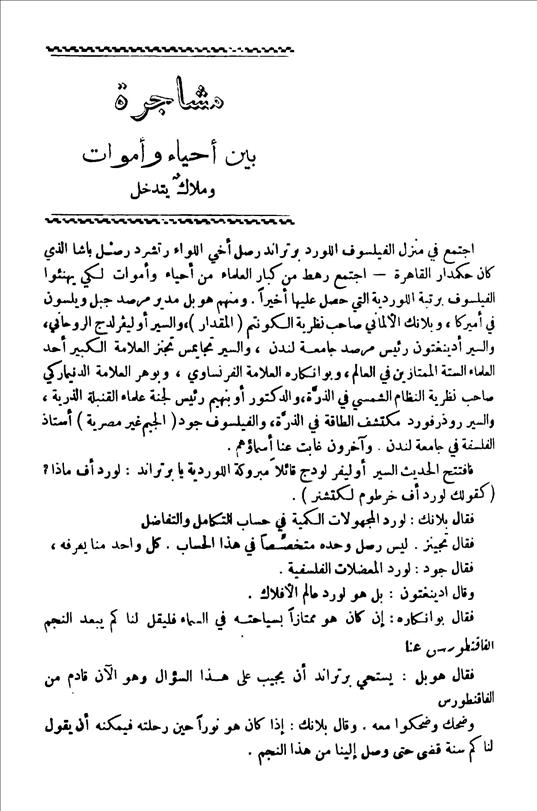 مشاجرة
بين أحياء وأموات
وملاك يتدخل
اجتمع في منزل الفيلسوف اللورد برتراند رصل أخي اللواء رتشرد رصل باشا الذي
كان حكمدار القاهرة — اجتمع رهط من كبار العلماء من أحياء وأموات لكي يهنئوا
الفيلسوف برتبة اللوردية التي حصل عليها أخيراً . ومنهم هوبل مدير مرصد جبل ويلسون
في أميركا ، وبلانك الألماني صاحب نظرية الكونتم ( المقدار ) ، والسير أوليفرلدج الروحاني،
والسير أدينغتون رئيس مرصد جامعة لندن ، والسير تجايمس تجنز العلامة الكبير أحد
العلماء الستة الممتازين في العالم ، وبوانكاره العلامة الفرنساوي ، وبوهر العلامة الدنيماركي
صاحب نظرية النظام الشمسي في الذرة، والدكتور أوبنهيم رئيس لجنة علماء القنبلة الذرية ،
والسير روذرفورد مكتشف الطاقة في الذرة، والفيلسوف جود ( الجيم غير مصرية ) أستاذ
الفلسفة في جامعة لندن . وآخرون غابت عنا أسماؤهم .
فافتتح الحديث السير أوليفر لودج قائلاً مبروكة اللوردية يا برتراند : لورد أف ماذا ؟
( كقولك لورد أف خرطوم لكتشنر ) .
فقال بلانك : لورد المجهولات الكمية في حساب التكامل والتفاضل
فقال تجينز . ليس رصل وحده متخصّصاً في هذا الحساب . كل واحد منا يعرفه ،
فقال جود : لورد المعضلات الفلسفية .
وقال ادينغتون : بل هو لورد عالم الأفلاك .
فقال بوانكاره : إن كان هو ممتازاً بسياحته في السماء فليقل لنا كم يبعد النجم
الفاقنطورس عنا
فقال هوبل : يستحي برتراند أن يجيب على هذا السؤال وهو الآن قادم من
الفاقنطورس
وضحك وضحكوا معه . وقال بلانك : إذا كان هو نوراً حين رحلته فيمكنه أن يقول
لنا كم سنة قضى حتى وصل إلينا من هذا النجم .